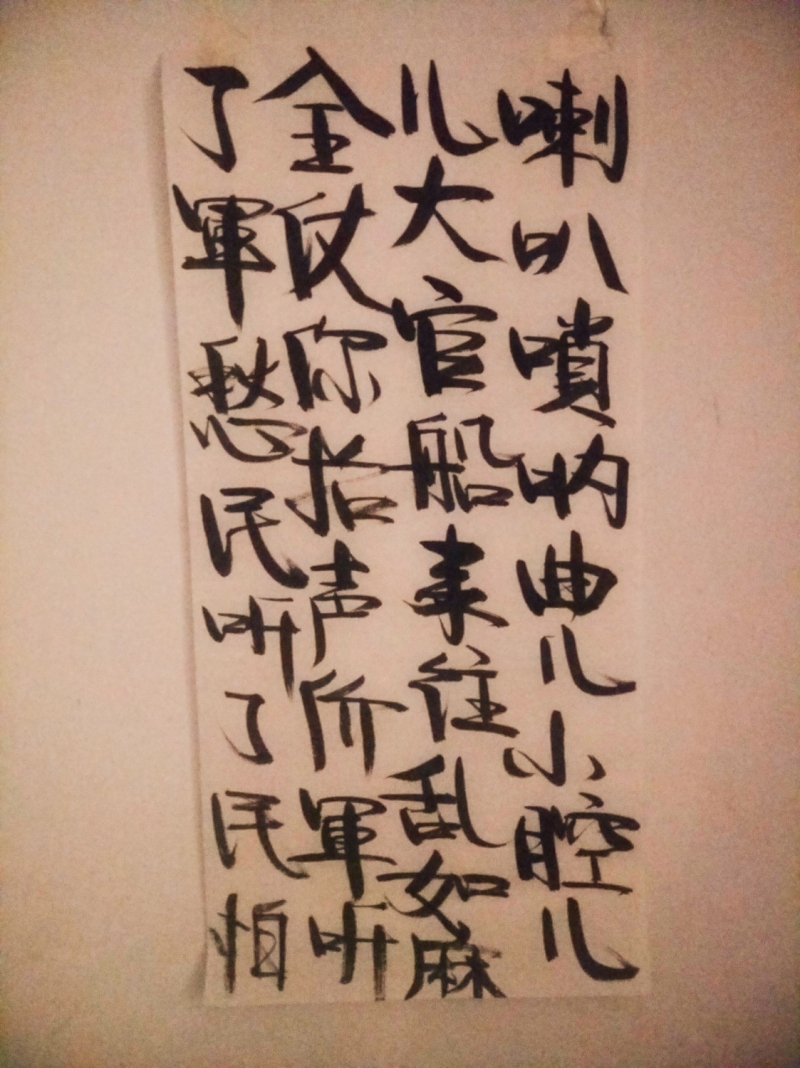 喇叭嗩吶曲儿小腔儿
儿大官船来往乱如麻
全仗你抬声价軍听
了軍愁民听了民怕